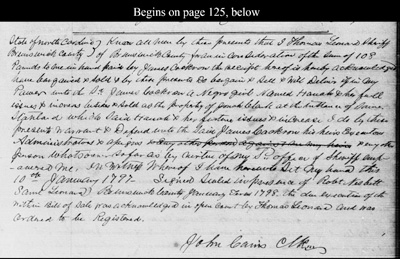 Begins on page 125, below
State of north Carolina } Know all men by these presents that I Thomas Leonard Sheriff
Brunswick County } of Brunswick County for & in Consideration of the Sum of 108
Pounds to me in hand paid by James Cookson the receipt hereof is hereby acknowledged
have bargained & sold & by these presents do bargain & Sell & Will Deliver of in my
Power unto the Sd James Cookson a Negro girl Named Hanah & her full
issues & increase which is Sold as the property of Jonah Clark at the instance of
which Said Hanah & her future issues & increase I do by these
presents Warrant & Defend unto the Said James Cookson his heirs Executors
Administrators & assigns & any other
person Whatsoever So far as by virtue of my Sd office of Sheriff
me In Witness Whereof I have hereunto Set my hand this
10th January 1797 Signed Sealed in presence of Robt Nesbitt
Saml Leonard Brunswick County January Term 1798. the due execution of the
within Bill of Sale was acknowledged in open Court by Thomas Leonard and was
ordered to be Registered.
John Cains Clk